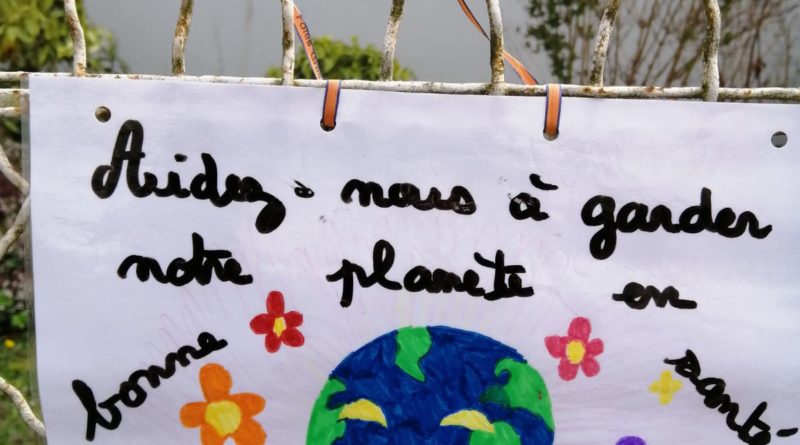 Aidez-nous à garder
notre planète en
bonne santé